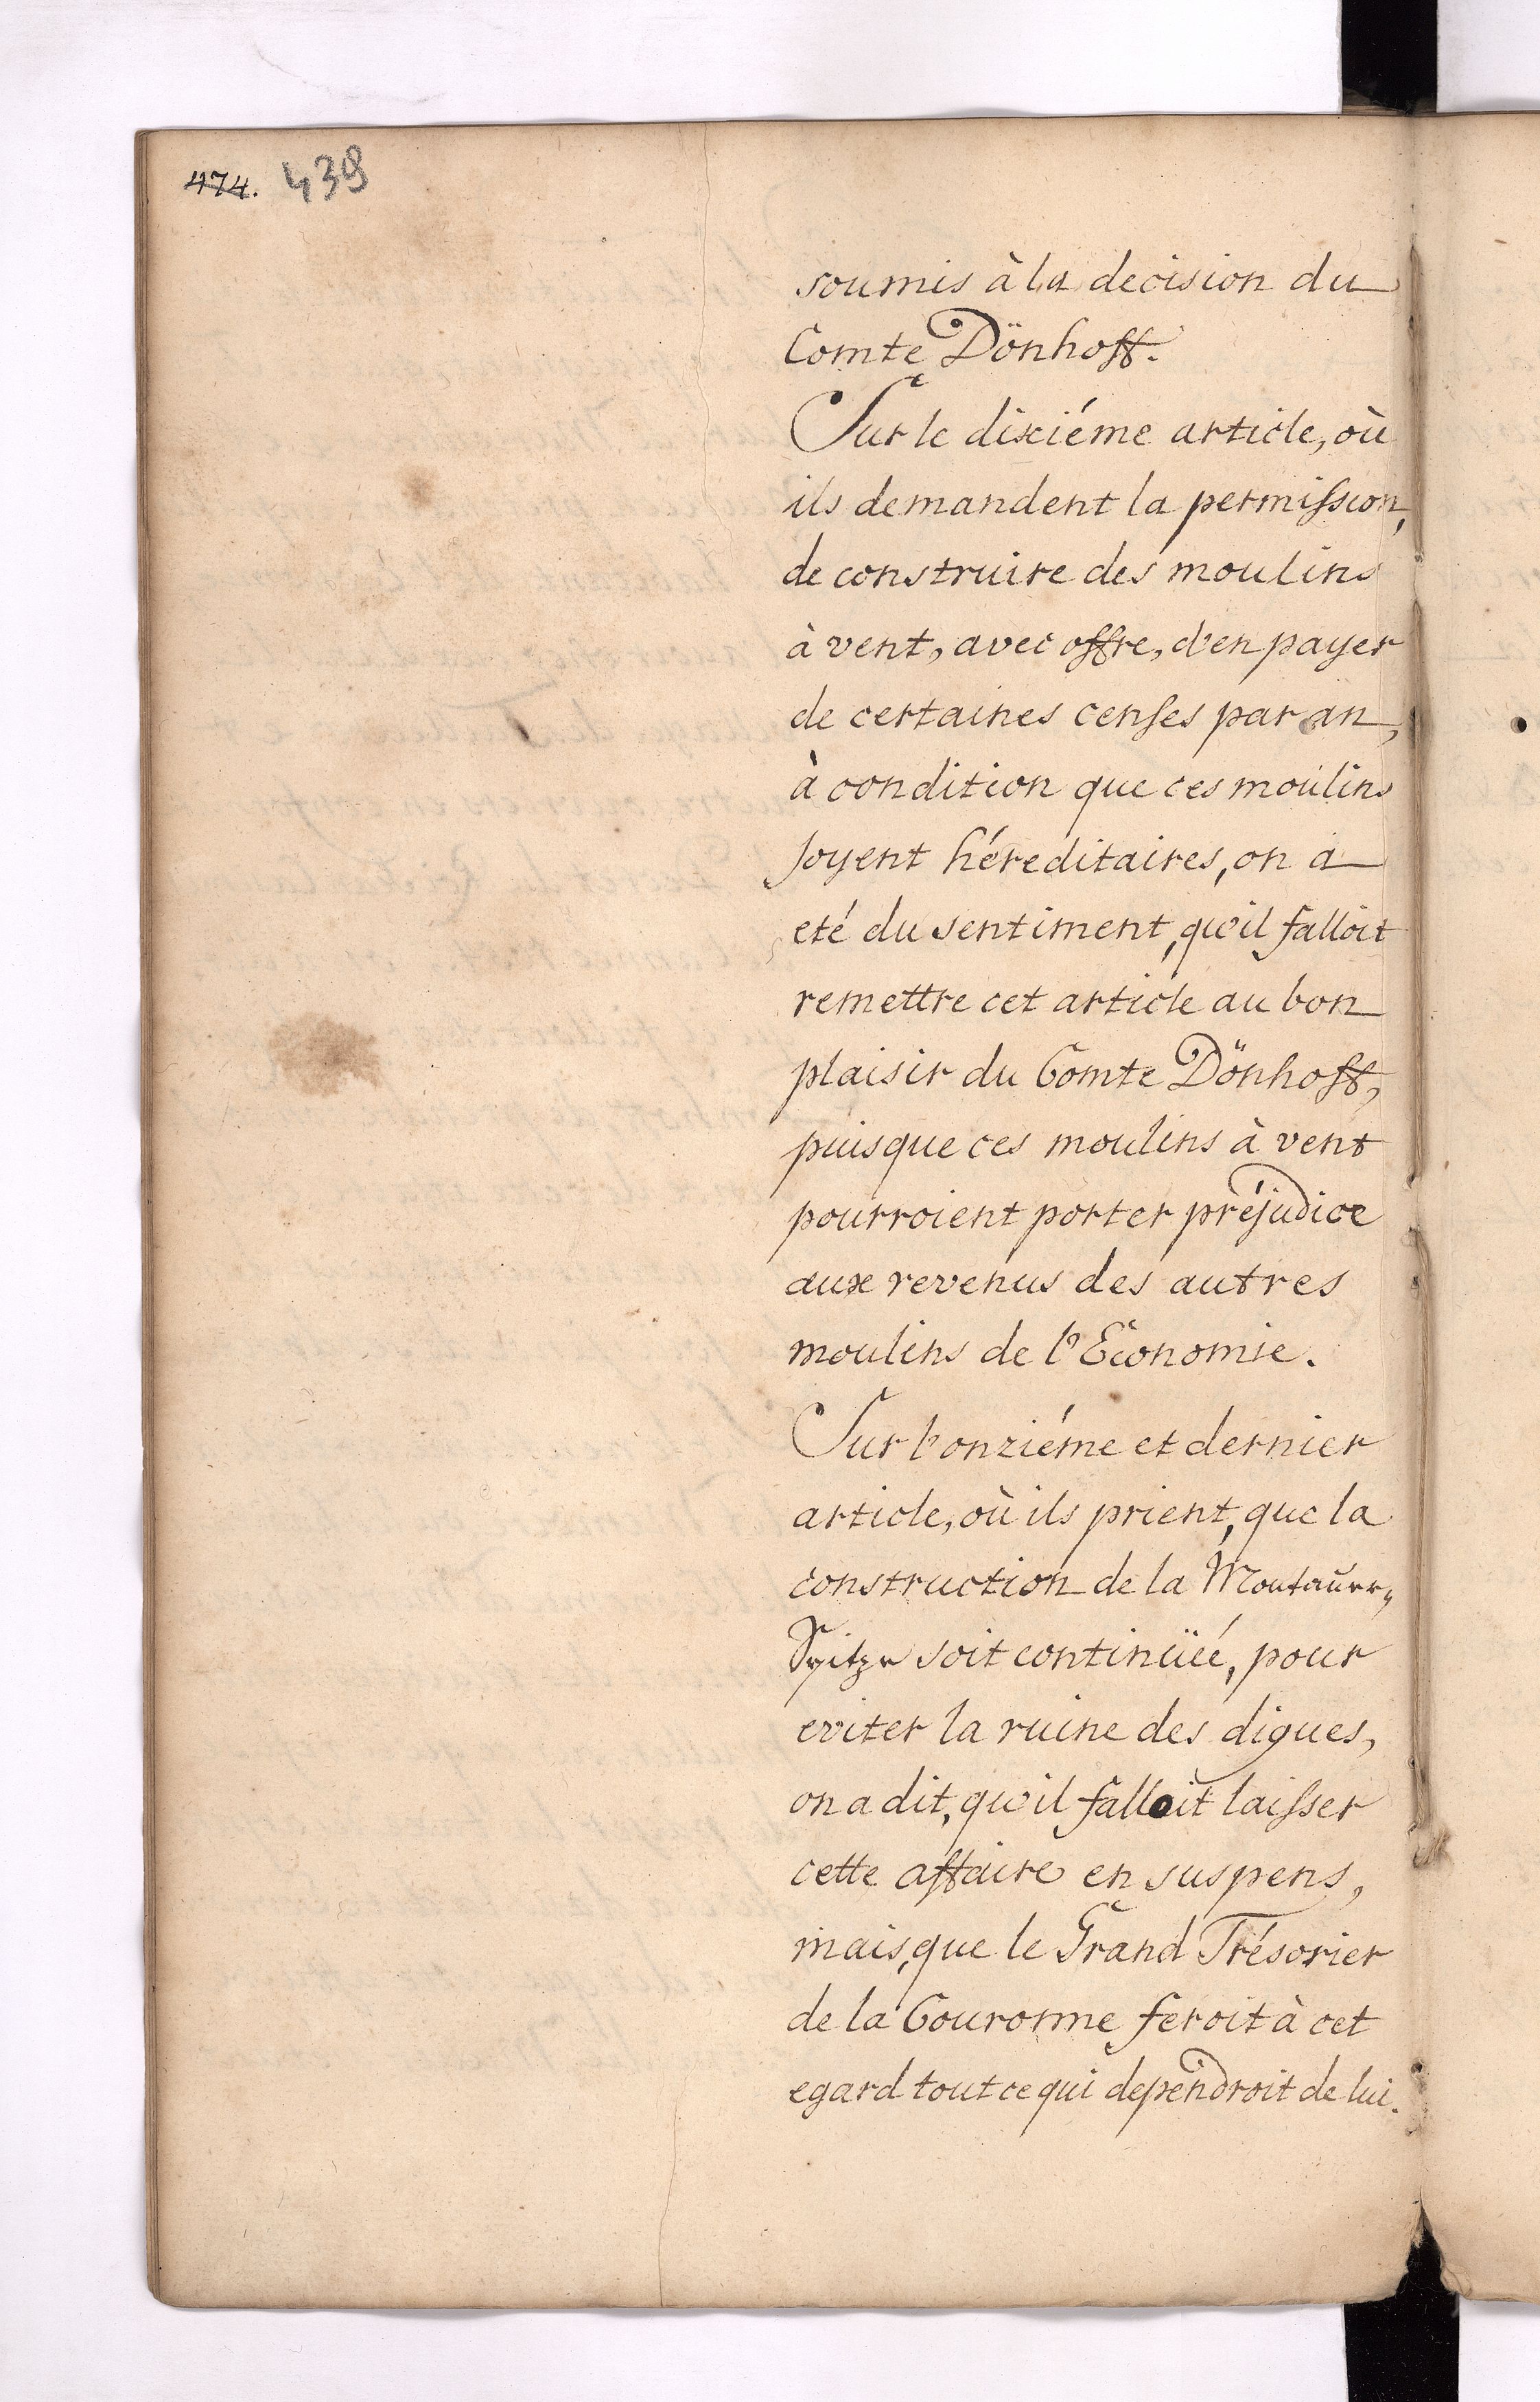 474. 439
soumis à la decision du
Comte Dönhoff.
Sur le dixiéme article, où
ils demandent la permission,
de construire des moulins
à vent, avec offre, d'en payer
de certaines censes par an,
à condition que ces moulins
soyent héreditaires, on a
eté du sentiment, qu'il falloit
remettre cet article au bon
plaisir du Comte Dönhoff,
puisque ces moulins à vent
pourroient porter préjudice
aux revenus des autres
moulins de l'Economie.
Sur l'onziéme et dernier
article, où ils prient, que la
construction de la Montauer-
Spitze soit continüée, pour
eviter la ruine des digues,
on a dit, qu'il falloit laisser
cette affaire en suspens,
mais, que le Grand Trésorier
de la Couronne feroit à cet
egard tout ce qui dependroit de lui.